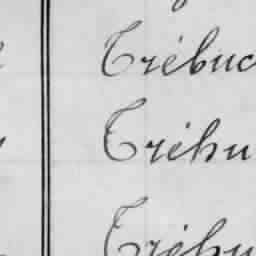 Trébuc
Tréhu
Tréhu